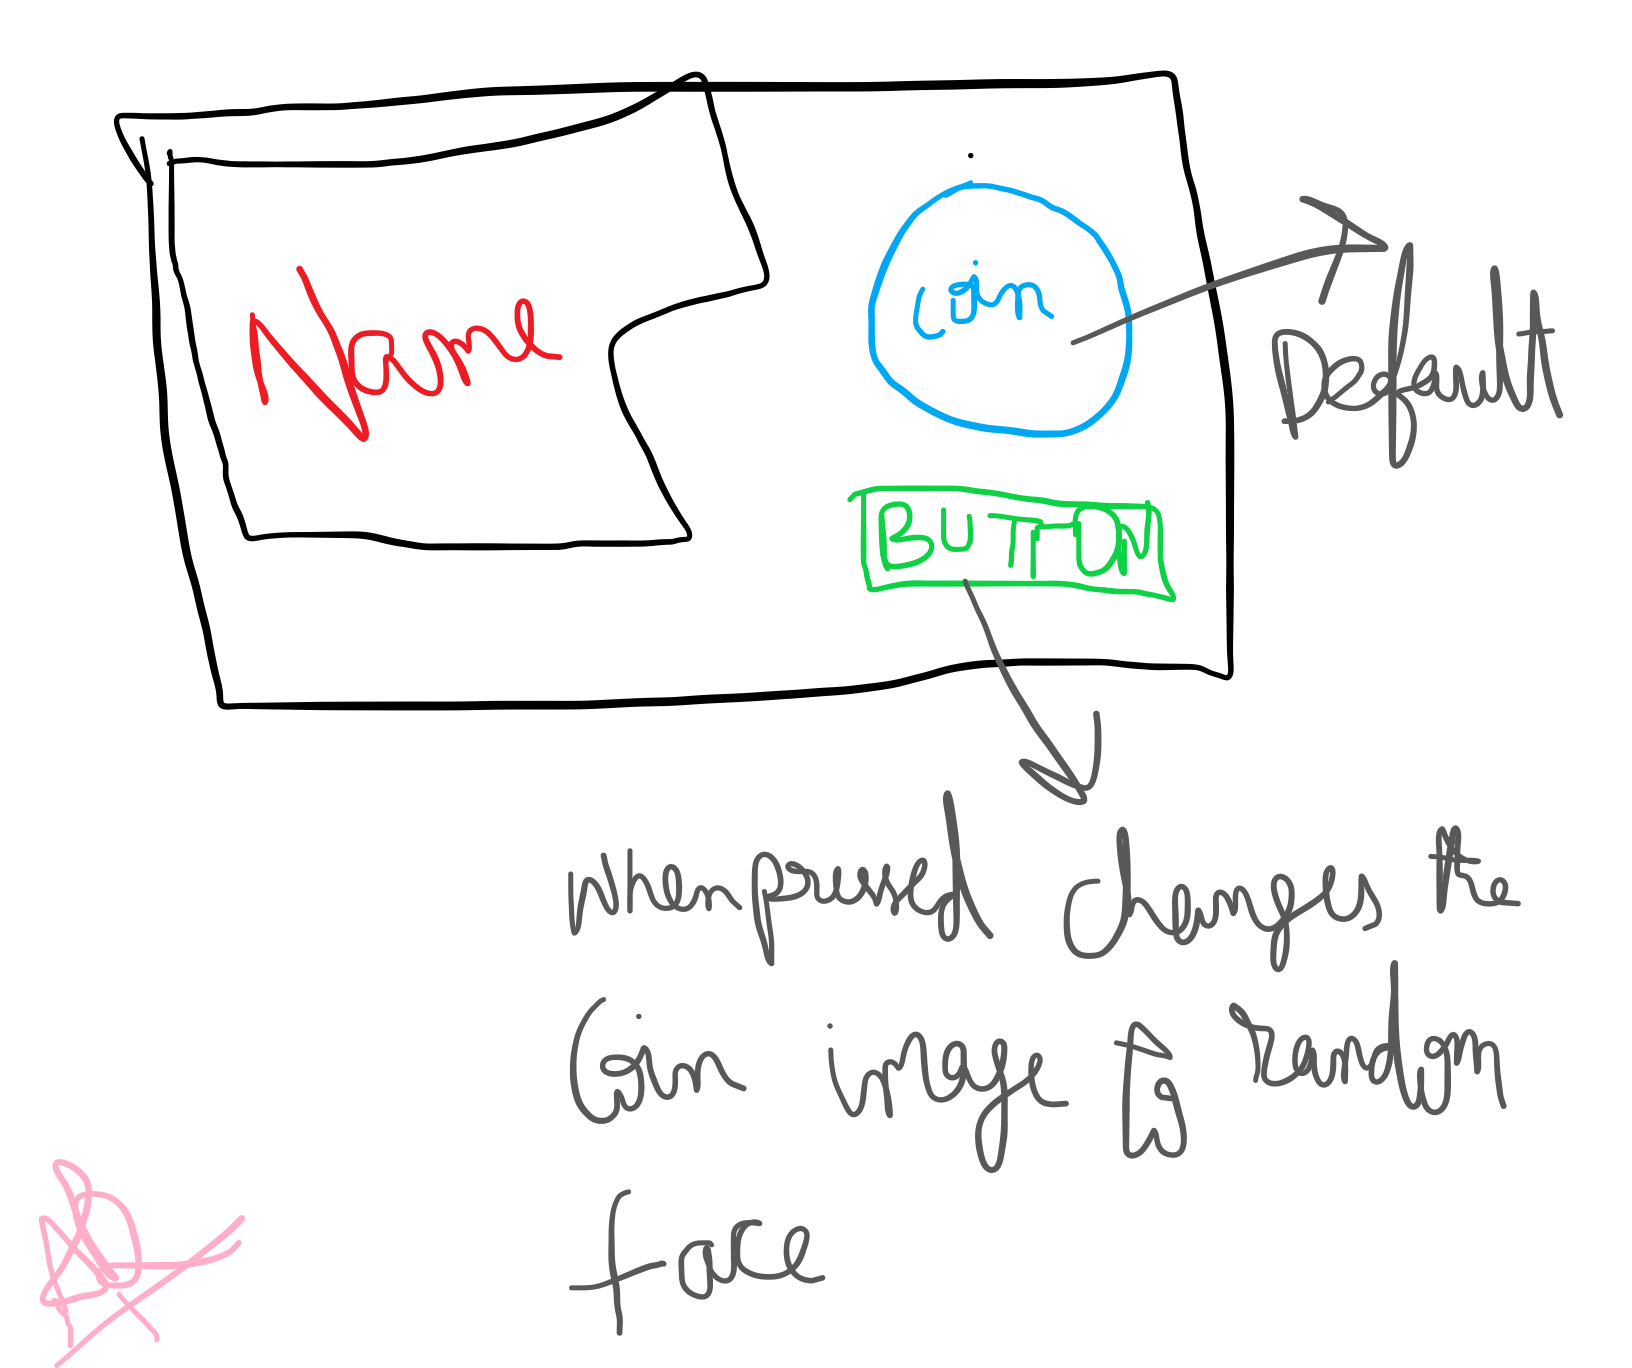 Name
coin
Default
BUTTON
when pressed changes the
Coin image to random
face